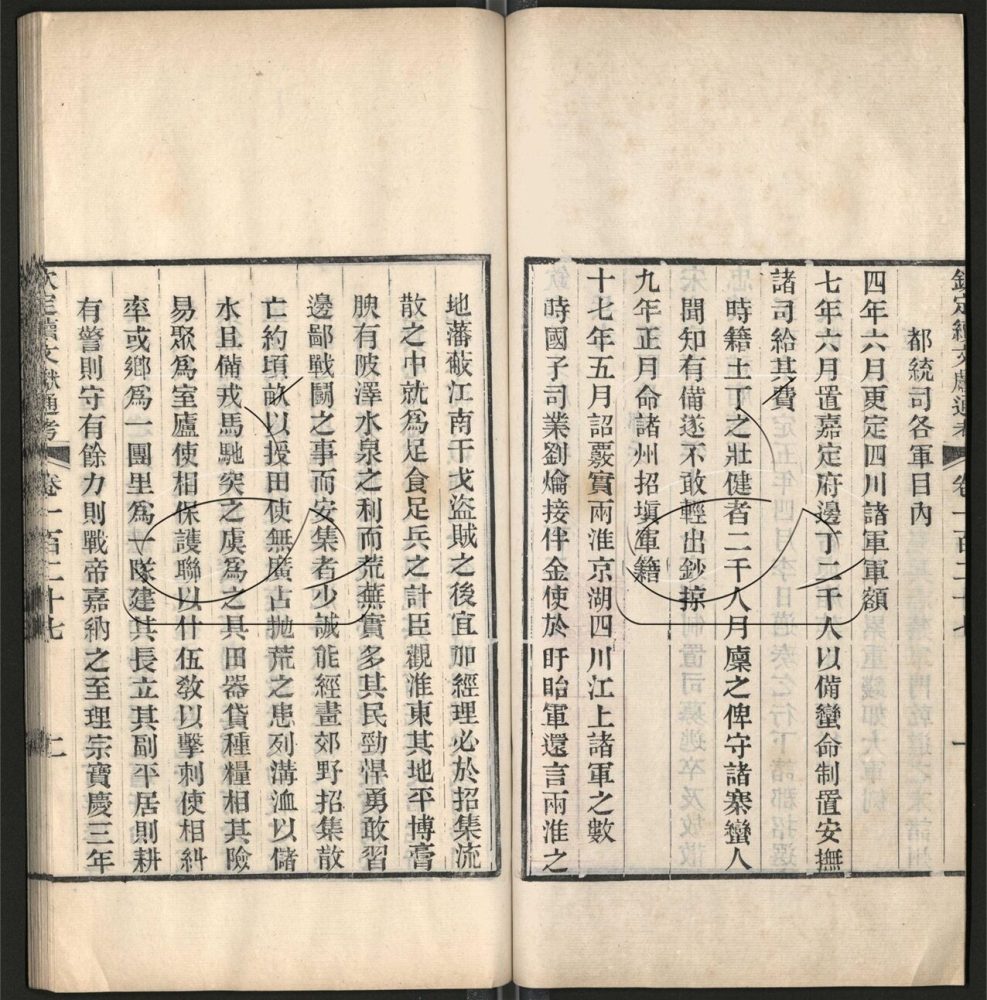 欽定續文獻通考 卷一百二十七 一
都統司各軍目內
四年六月更定四川諸軍軍額
七年六月置嘉定府邊丁二千人以備蠻命制置安撫
諸司給其費
時籍土丁之壯健者二千人月廩之俾守諸寨蠻人
聞知有備遂不敢輕出鈔掠
九年正月命諸州招塡軍籍
十七年五月詔覈實兩淮京湖四川江上諸軍之數
時國子司業劉爚接伴金使於盱眙軍還言兩淮之
地藩蔽江南干戈盜賊之後宜加經理必於招集流
散之中就爲足食足兵之計臣觀淮東其地平博膏
腴有陂澤水泉之利而荒蕪實多其民勁悍勇敢習
邊鄙戰鬪之事而安集者少誠能經畫郊野招集散
亡約頃畝以授田使無廣占拋荒之患列溝洫以儲
水且備戎馬馳突之虞爲之具田器貸種糧相其險
易聚爲室廬使相保護聯以什伍敎以擊刺使相糾
率或鄉爲一團里爲一隊建其長立其副平居則耕
有警則守有餘力則戰帝嘉納之至理宗寶慶三年
欽定續文獻通考 卷一百二十七 二